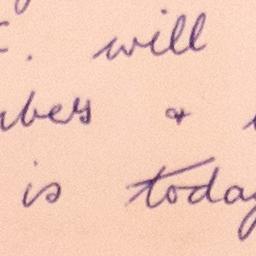 . will
bers &
is today